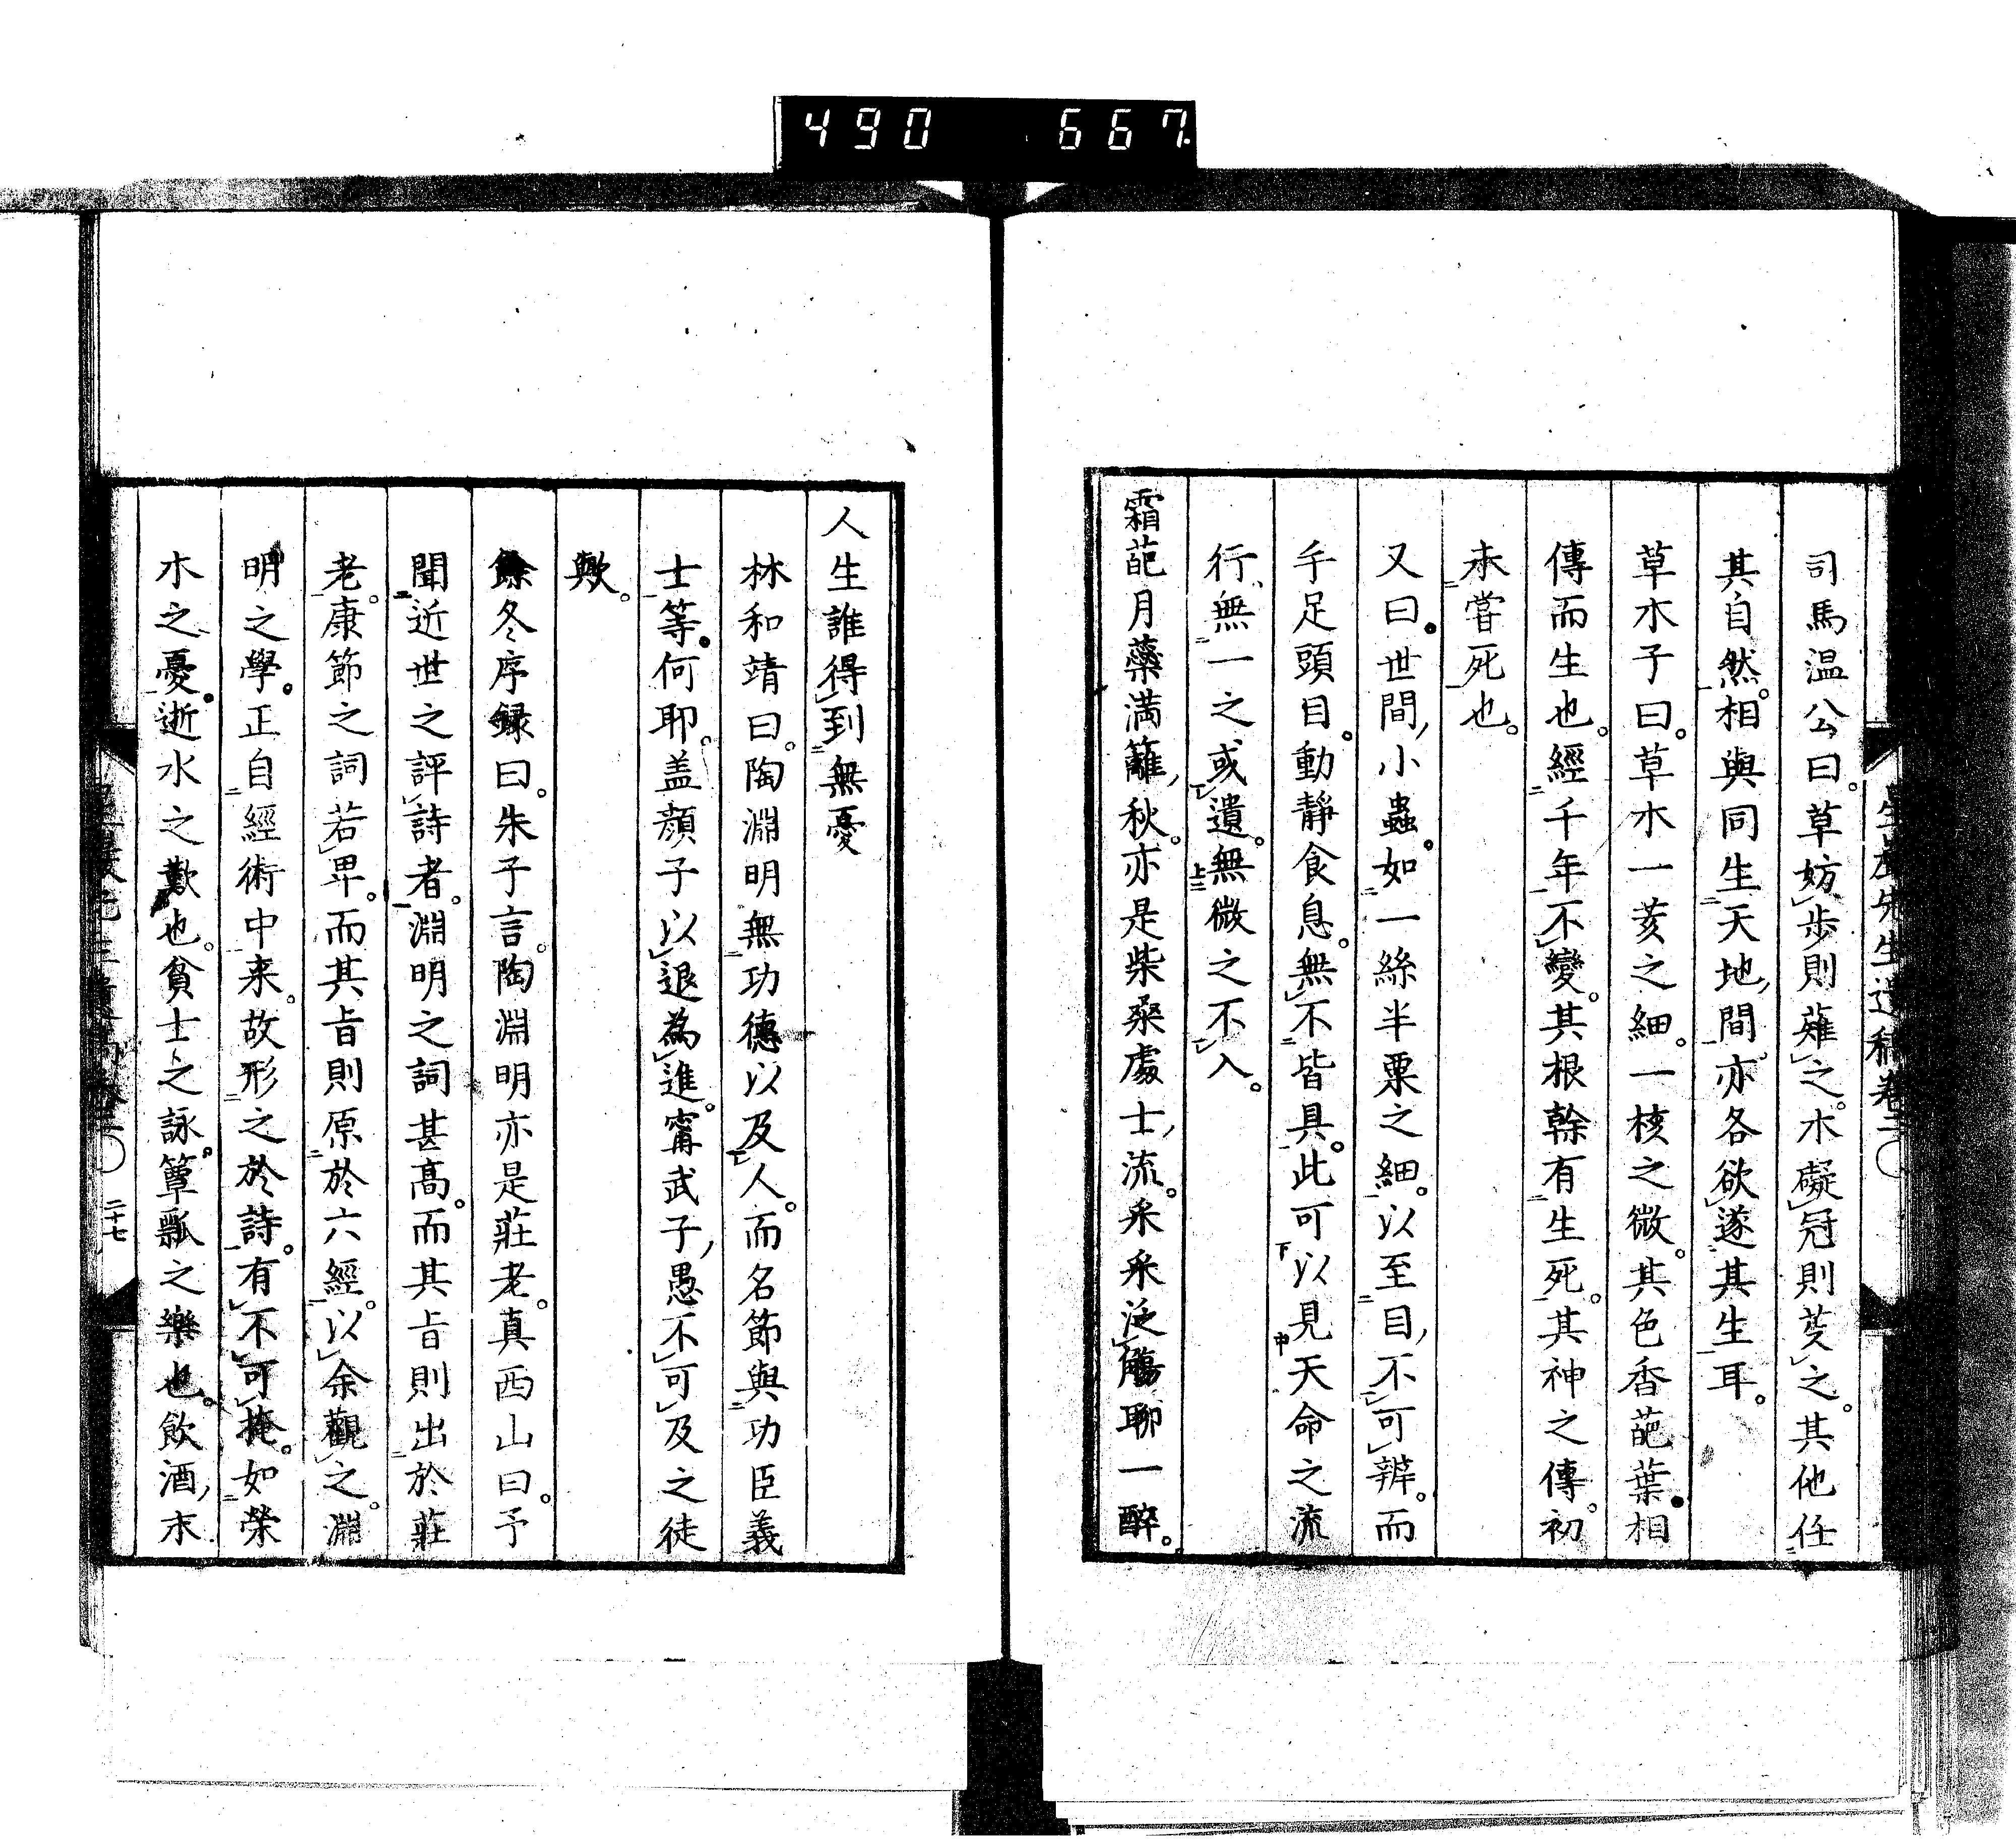 490 667
司馬温公曰。草妨歩則薙之。木礙冠則芟之。其他任
其自然。相與同生天地間亦各欲遂其生耳。
草木子曰。草木一荄之細。一核之微。其色香葩葉。相
傳而生也。經千年不變。其根幹有生死。其神之傳。初
未嘗死也。
又曰。世間小蟲。如一絲半粟之細。以至目不可辨。而
手足頭目。動靜食息。無不皆具。此可以見天命之流
行、無一之或遺。無微之不入。
霜葩月蘂満籬秋。亦是柴桑處士流。采采泛觴聊一醉。
人生誰得到無憂
林和靖曰。陶淵明無功德以及人。而名節與功臣義
士等。何耶。盖顔子以退為進。甯武子愚不可及之徒
歟。
餘冬序録曰。朱子言。陶淵明亦是莊老。真西山曰。予
聞近世之評詩者。淵明之詞甚高。而其旨則出於莊
老。康節之詞若卑。而其旨則原於六經。以余觀之。淵
明之學。正自經術中来。故形之於詩。有不可掩。如榮
木之憂。逝水之歎也。貧士之詠。簞瓢之樂也。飲酒末
二十七